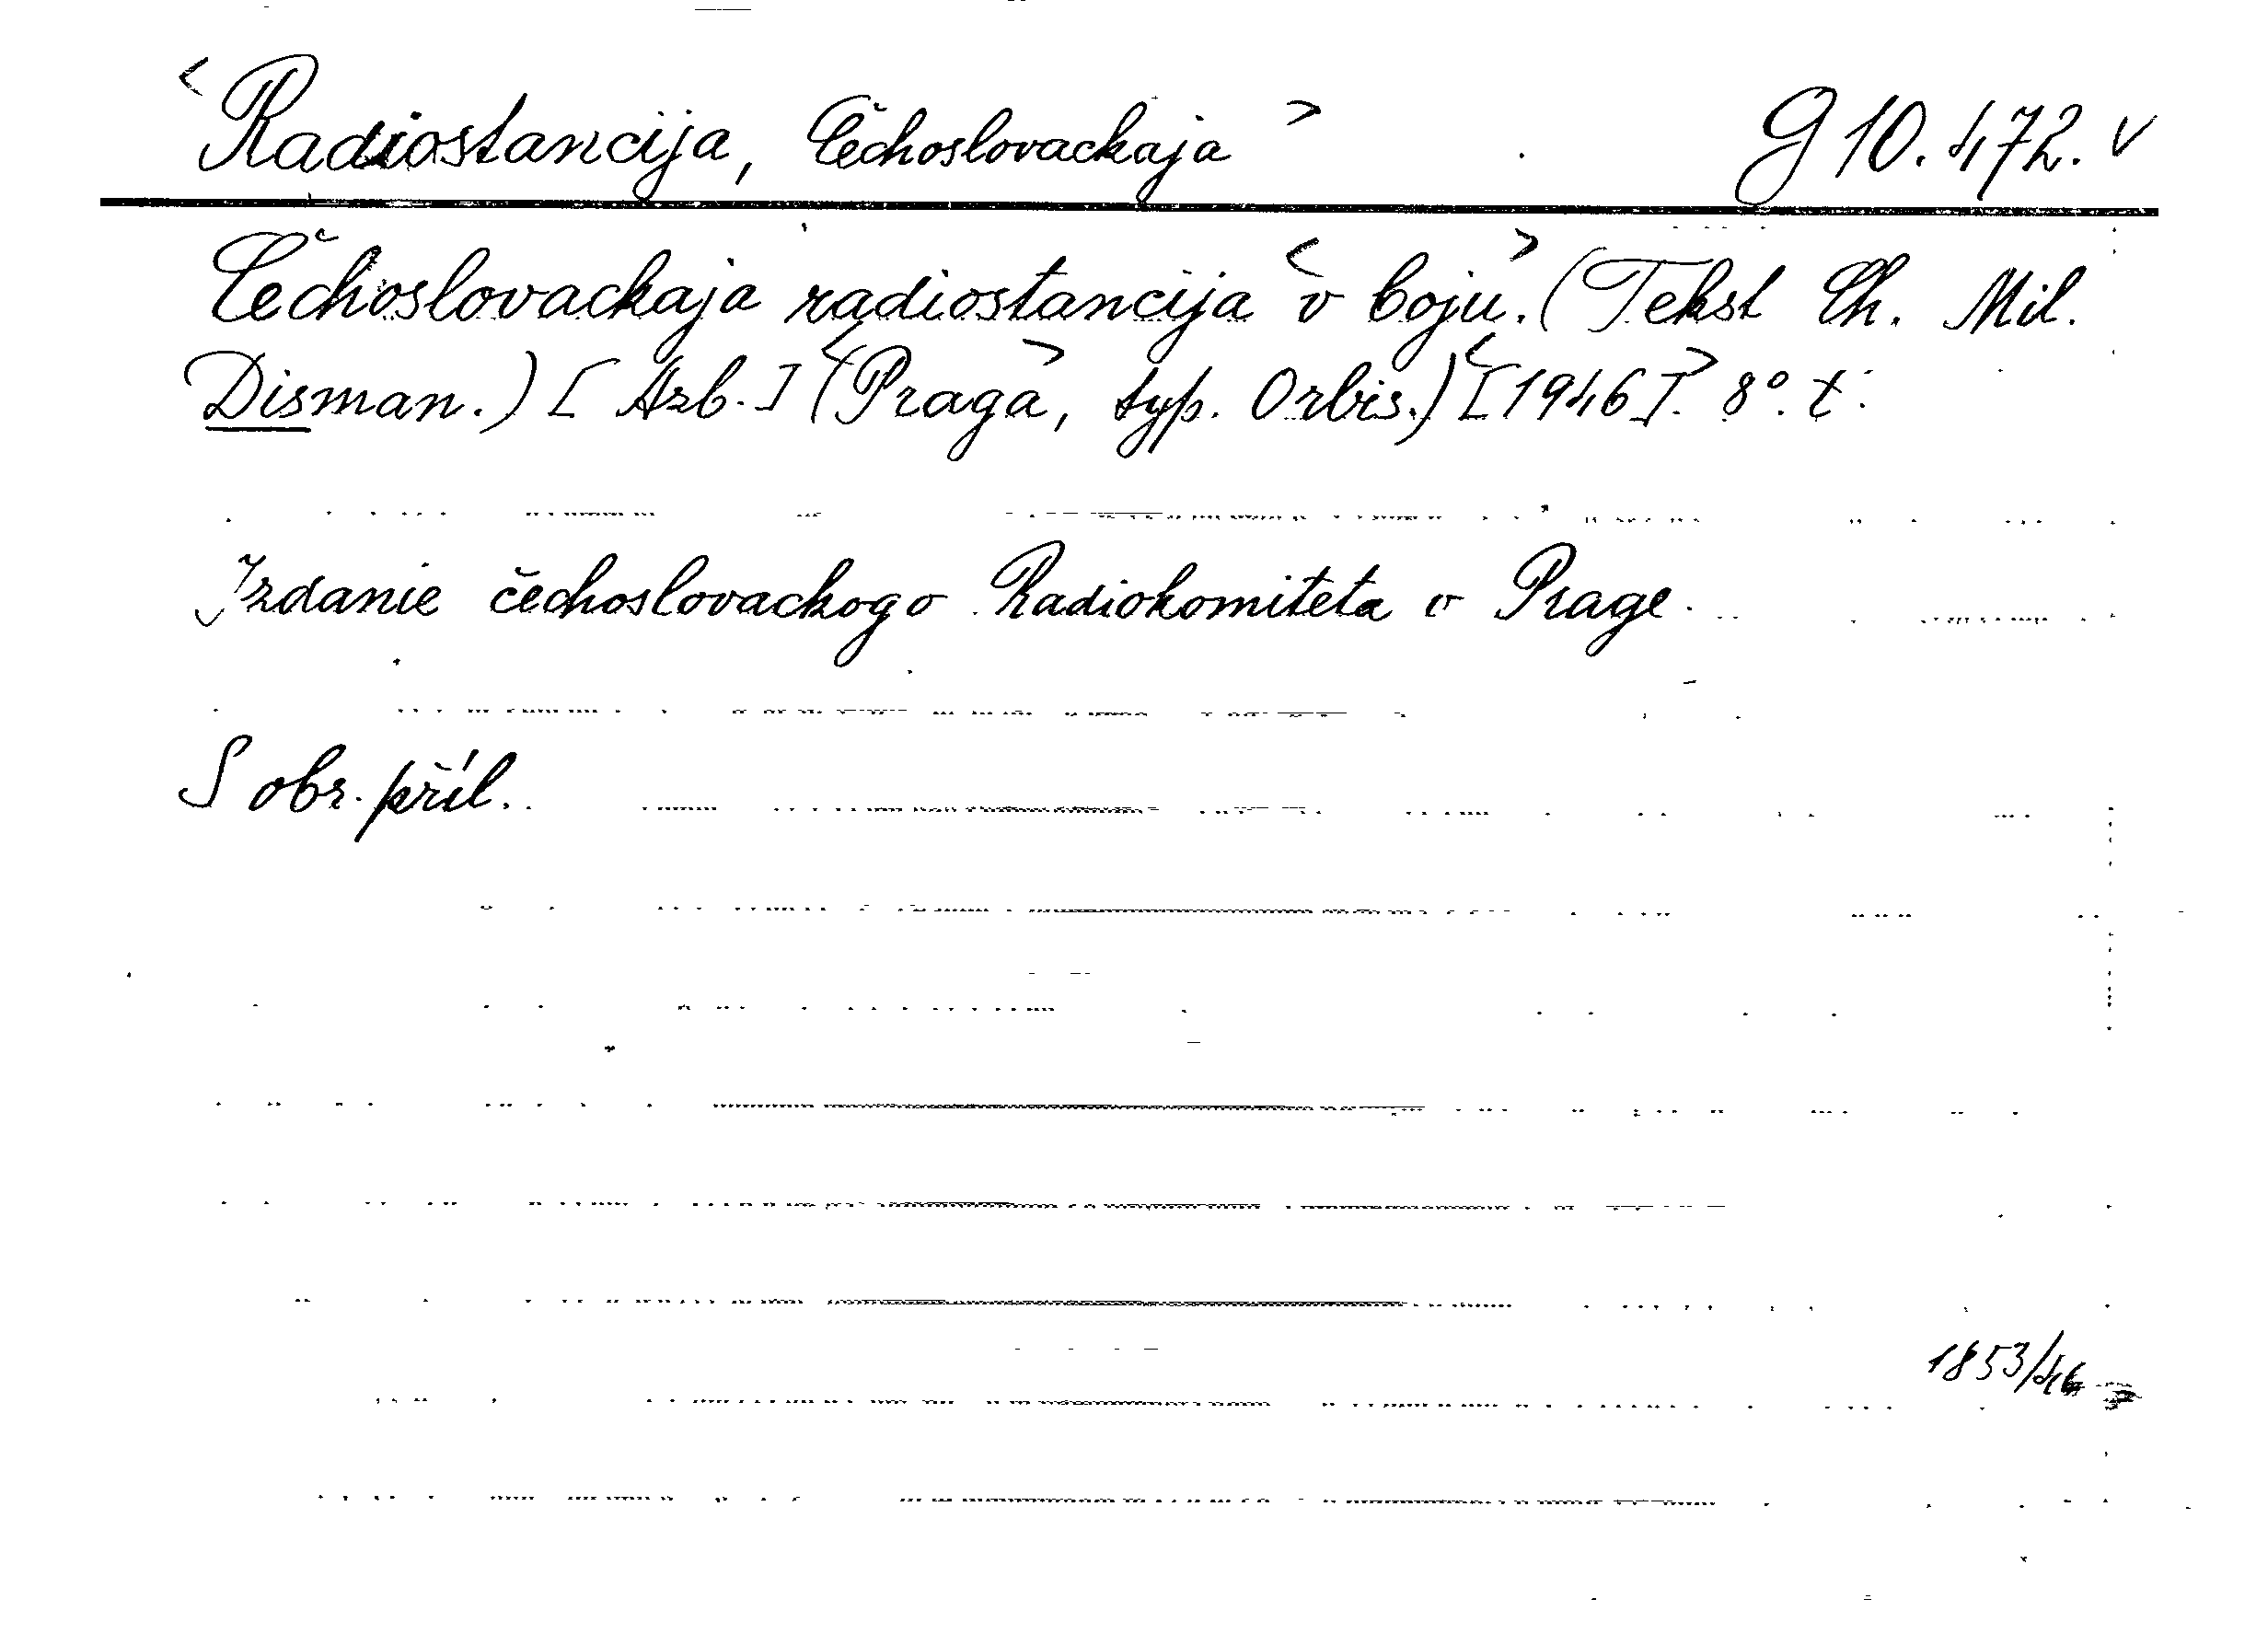 <Radiostancija, Čechoslovackaja> G 10.472. v
Čechoslovackaja radiostancija <v boju>. (Tekst Ch. Mil.
Disman.) [Azb.] <(Praga>, typ. Orbis.) <[1946]>. 8°. t.
Izdanie čechoslovackogo Radiokomiteta v Prage.
S obr. příl.
1853/46